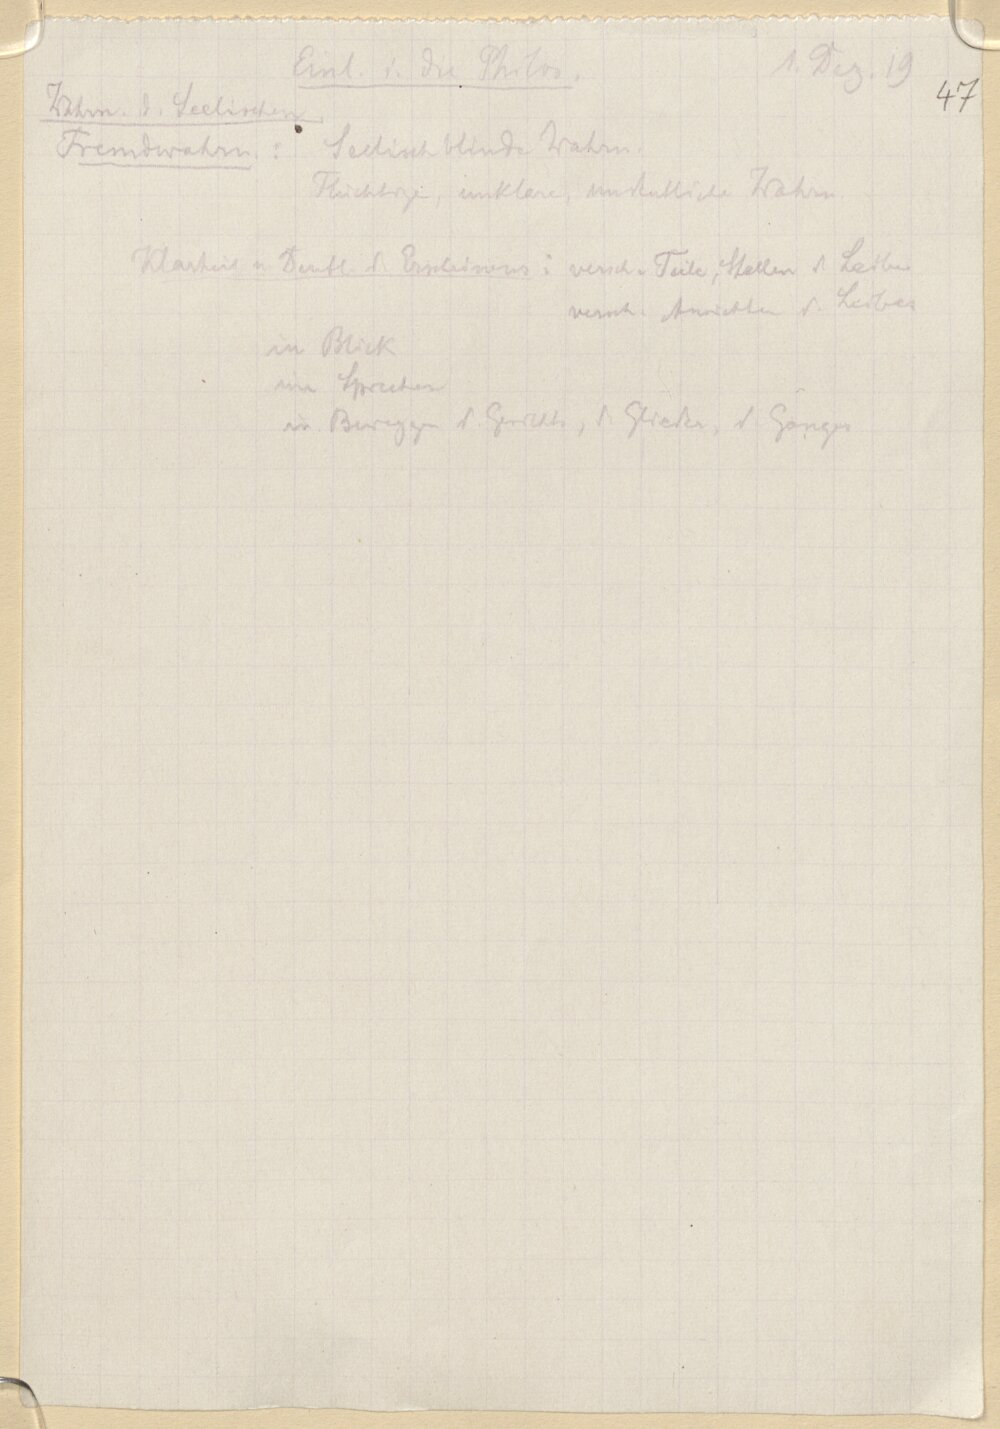 Einl. i. die Philos. 1. Dez. 19
47
Wahrn. d. Seelischen
Fremdwahrn.: Seelisch blinde Wahrn.
Flüchtige, unklare, undeutliche Wahrn.
Klarheit u. Deutl. d. : versch. Teile, Stellen d. Leibes
versch. Ansichten d. Leibes
im Blick
im Sprechen
in Beweggn d. Gesichts, d. Glieder, d. Ganges